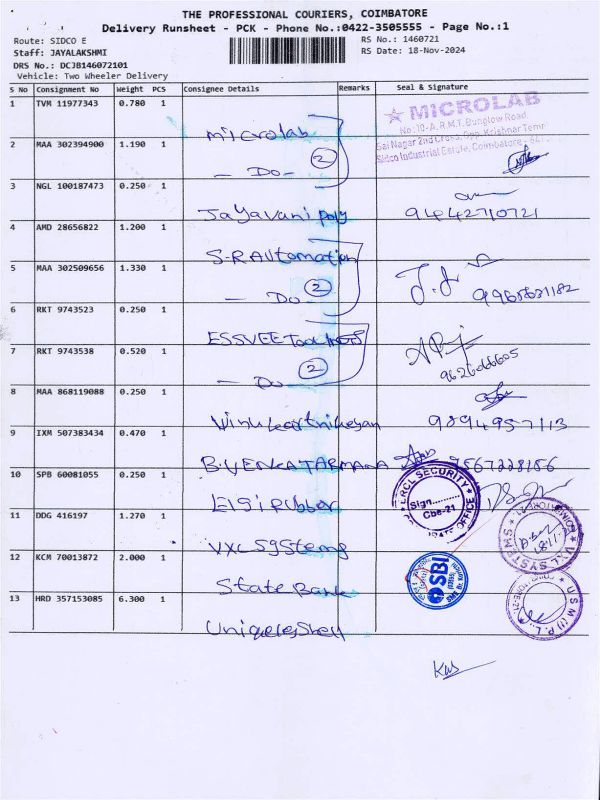 THE PROFESSIONAL COURIERS, COIMBATORE
Delivery Runsheet - PCK - Phone No.:0422-3505555 - Page No.:1
Route: SIDCO E
RS No.: 1460721
Staff: JAYALAKSHMI
RS Date: 18-Nov-2024
DRS No.: DCJB146072101
Vehicle: Two Wheeler Delivery
S No Consignment No Weight PCS Consignee Details Remarks Seal & Signature
1 TVM 11977343 0.780 1 microlab
★ MICROLAB
No:10-A, R.M.T. Bunglow Road,
Sai Nagar 2nd Cross, Opp. Krishnar Temple
Sidco Industrial Estate, Coimbatore - 641
2 MAA 302394900 1.190 1 - Do - 2
3 NGL 100187473 0.250 1 Jayavani poly 9442710721
4 AMD 28656822 1.200 1 S-R Automation
5 MAA 302509656 1.330 1 - Do - 2 9965631182
6 RKT 9743523 0.250 1 ESSVEE Tool
7 RKT 9743538 0.520 1 - Do - 2 9626066605
8 MAA 868119088 0.250 1 Vinu Keartnikeyan 9894957113
9 IXM 507383434 0.470 1 B.VENKATARMANA 9567228156
10 SPB 60081055 0.250 1 Elgi rubber
ERCL SECURITY
Sign..........
Cbe-21
11 DDG 416197 1.270 1 VXL Systems
VXL SYSTEMS
12 KCM 70013872 2.000 1 State Bank
SBI
13 HRD 357153085 6.300 1 Unique Shell
U S M (I) P. L.